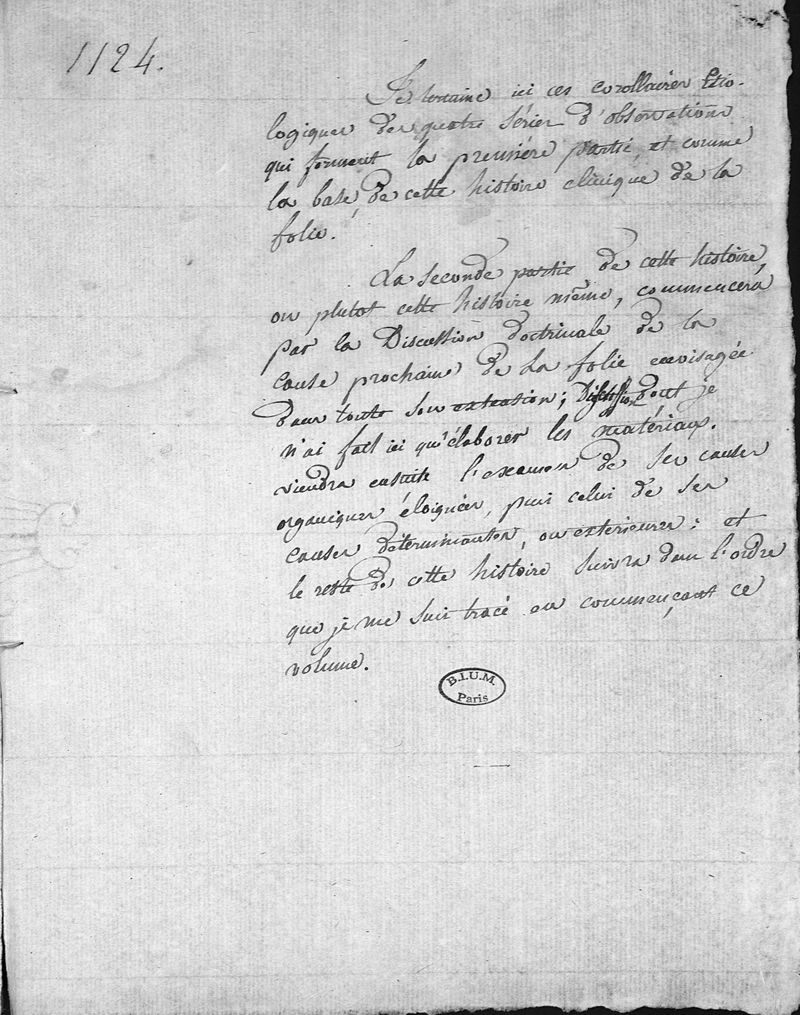 1124.
Je termine ici ces corollaires Etio-
logiques des quatre séries d'observations
qui forment la première partie, et comme
la base de cette histoire clinique de la
folie.
La seconde partie de cette histoire,
ou plutot cette histoire même, commencera
par la Discussion doctrinale de la
cause prochaine de la folie envisagée
dans toute son extension; Discussion dont je
n'ai fait ici qu'élaborer les matériaux.
viendra ensuite l'examen de ses causes
organiques éloignées, puis celui de ses
causes déterminantes, ou extérieures: et
le reste de cette histoire suivra dans l'ordre
que je me suis tracé en commençant ce
volume.
B.I.U.M.
Paris